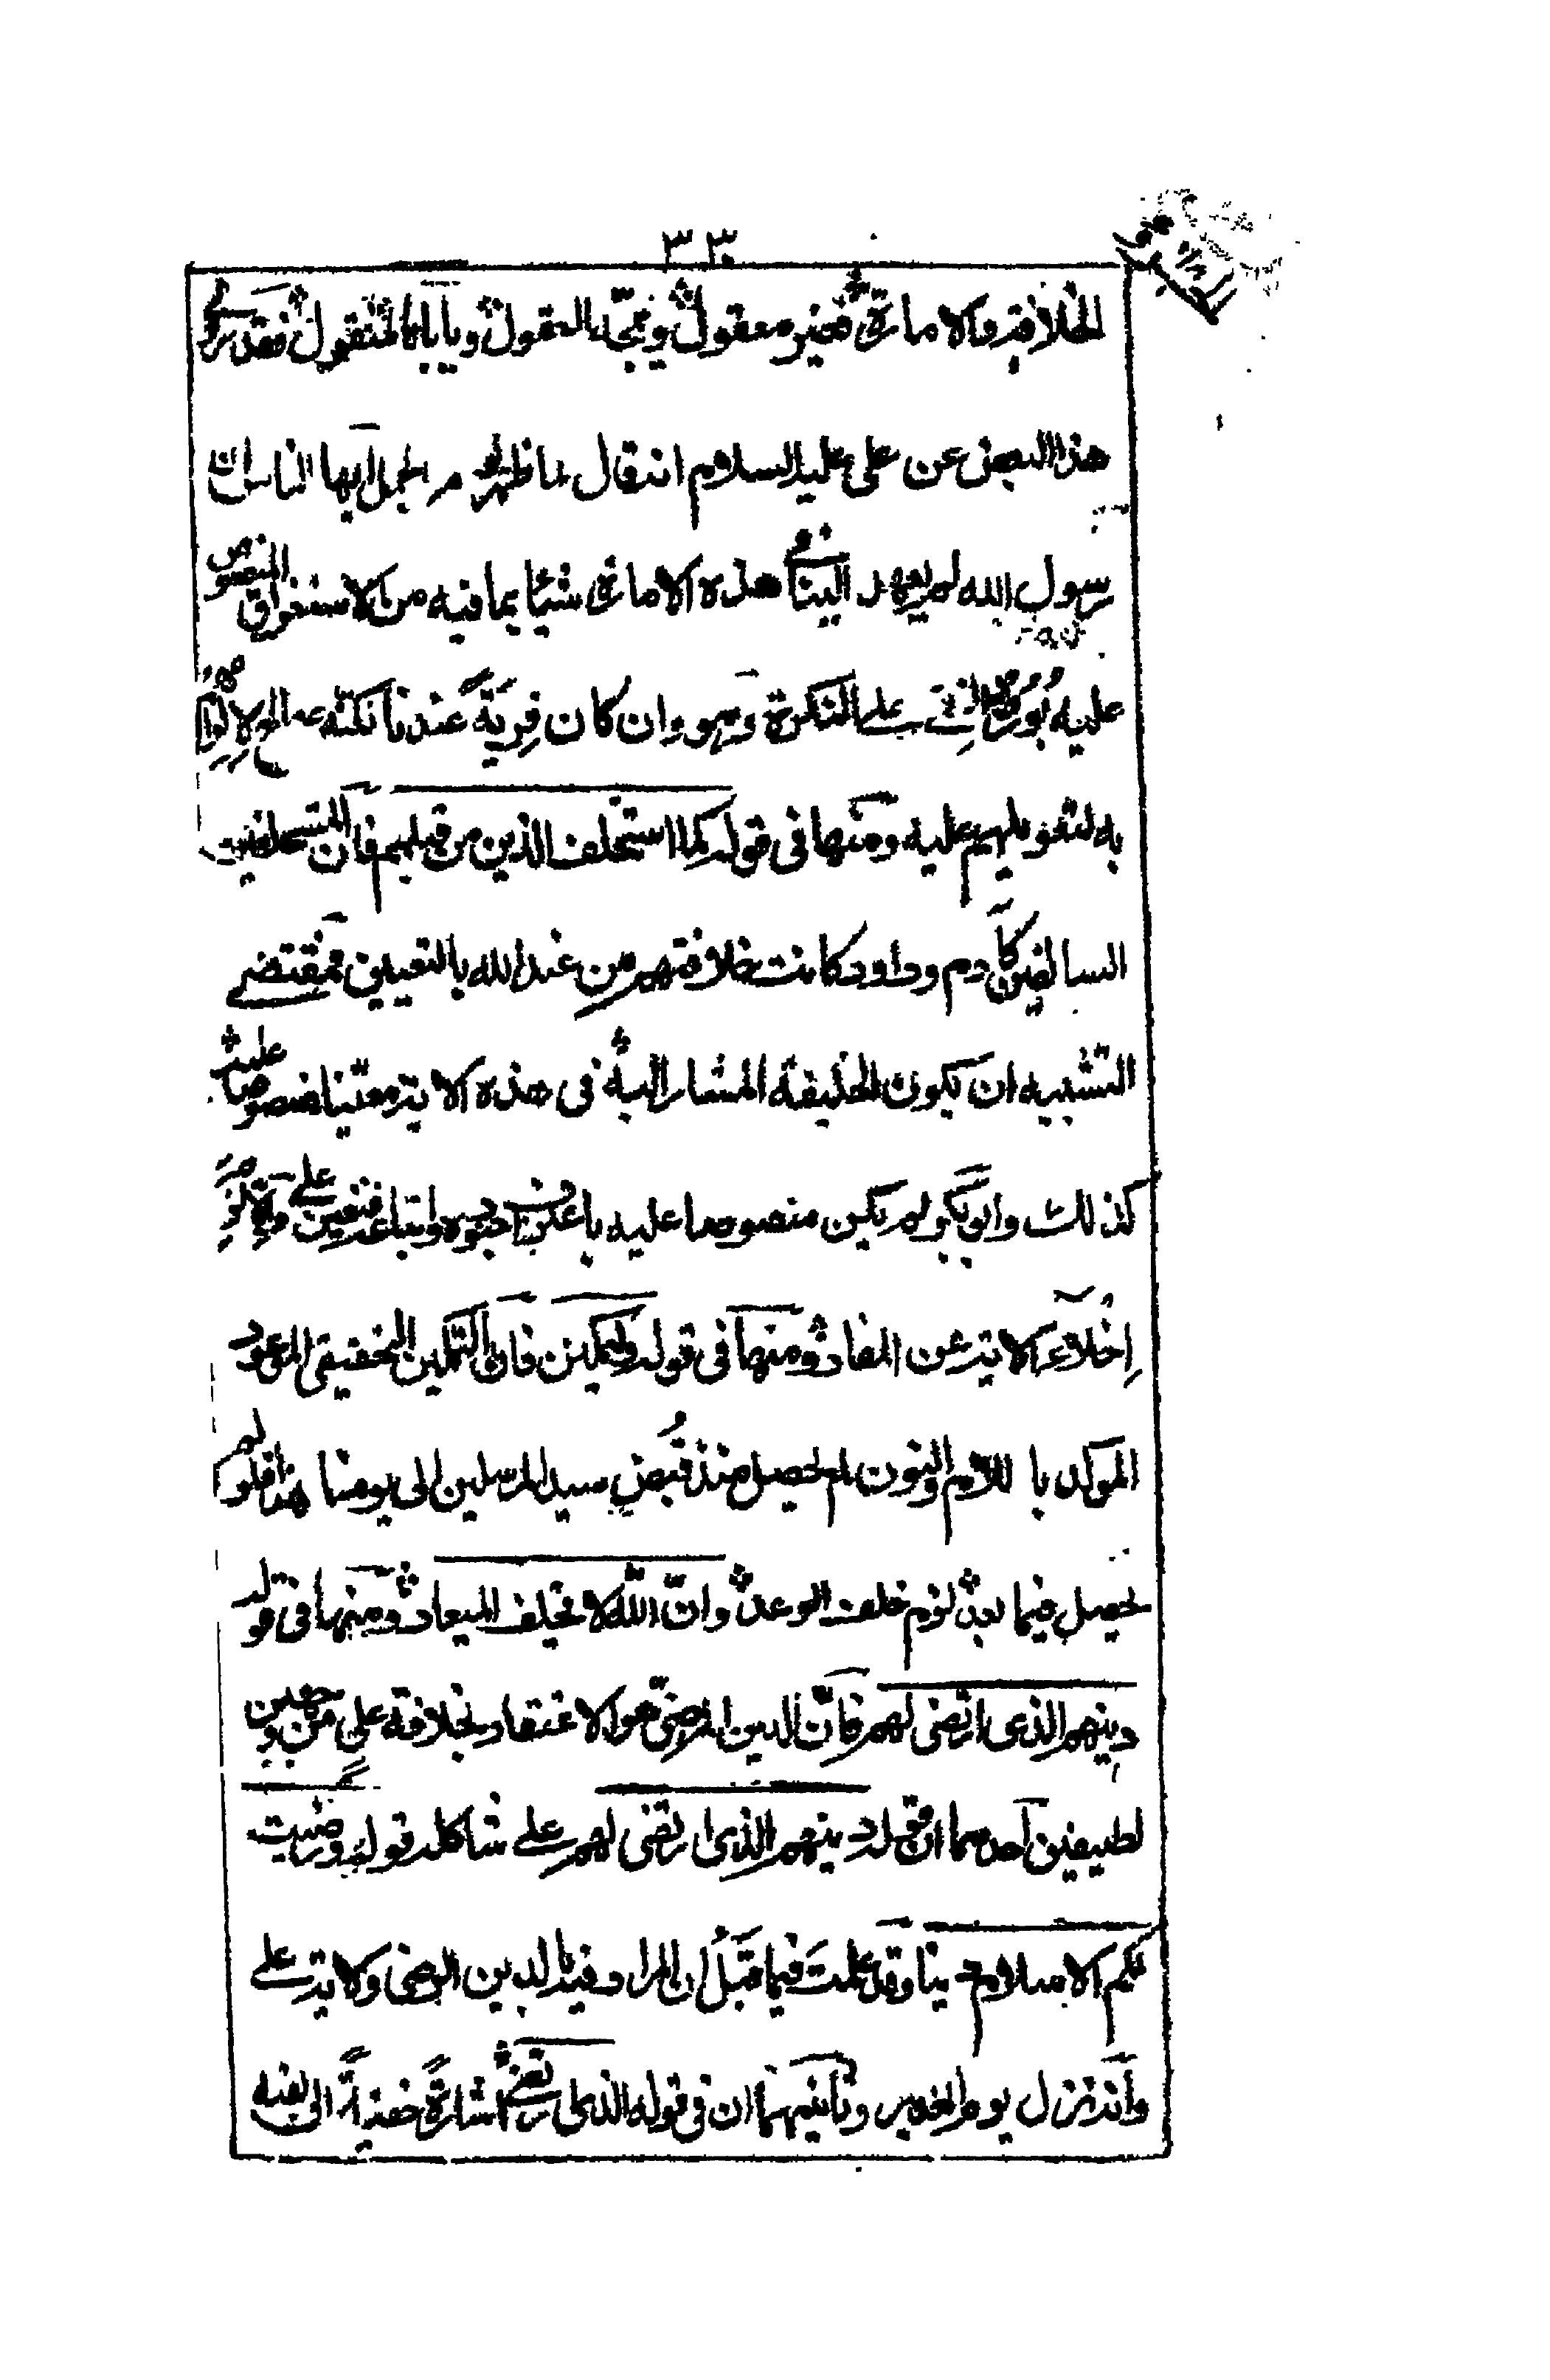 ٣٣
الخلافة والامارة فغير معقول ويمجّه العقول ويأباه المنقول فقد
هذا البعض عن علي عليه السلام انه قال لما ظهر الجمل ايها الناس ان
رسول الله لم يعهد الينا في هذه الامارة شيئا بما فيه من الاستغراق المنصوص
عليه على النكرة وهو وان كان فرية عندنا لكنه
به لتعويلهم عليه ومنها في قوله كما استخلف الذين من قبلهم فان المستخلفين
السالفين كآدم وداود كانت خلافتهم من عند الله بالتعيين فمقتضى
التشبيه ان يكون الخليفة المشار اليه في هذه الاية معيّنا منصوصا عليه
كذلك وابوبكر لم يكن منصوصا عليه باعتراف واتباعه فتعين علي
اخلاء الاية عن المفاد ومنها في قوله وليمكنن فان التمكين الحقيقي الموعود
الموكد باللام والنون لم يحصل منذ قبض سيد المرسلين الى يومنا هذا فلو لم
يحصل فيما بعد لزم خلف الوعد وانّ الله لا يخلف الميعاد ومنها في قوله
دينهم الذي ارتضى لهم فانّ الدين المرضيّ هو الاعتقاد بخلافة علي من وجهين
لطيفين احدهما ان قوله دينهم الذي ارتضى لهم على شاكلة قوله ورضيت
لكم الاسلام دينا وقد علمت فيما قبل ان المراد فيه الدين المرضي ولاية علي
وانه نزل يوم الغدير وثانيهما ان في قوله الذي ارتضى اشارة خفية الى لقبه